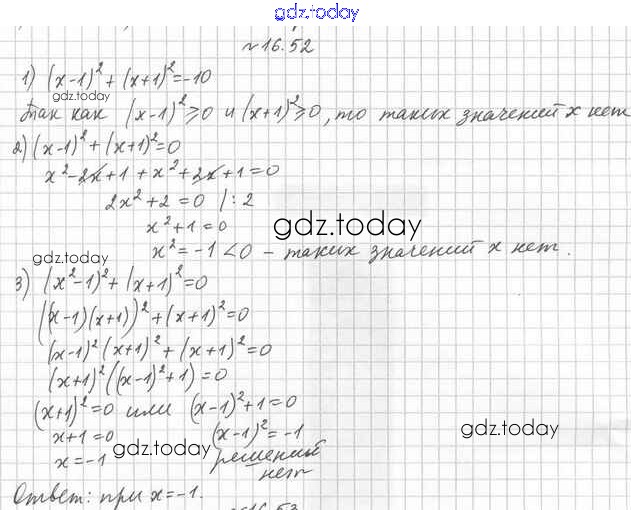 gdz.today
№16.52
1) (x-1)²+(x+1)²=-10
gdz.today
Так как (x-1)²≥0 и (x+1)²≥0, то таких значений x нет
2) (x-1)²+(x+1)²=0
x²-2x+1+x²+2x+1=0
2x²+2=0 |:2
x²+1=0
gdz.today
x²=-1<0 - таких значений x нет.
gdz.today
3) (x²-1)²+(x+1)²=0
((x-1)(x+1))²+(x+1)²=0
(x-1)²(x+1)²+(x+1)²=0
(x+1)²((x-1)²+1)=0
(x+1)²=0 или (x-1)²+1=0
x+1=0 (x-1)²=-1
gdz.today
gdz.today
x=-1 решений
нет
Ответ: при x=-1.
№16.53